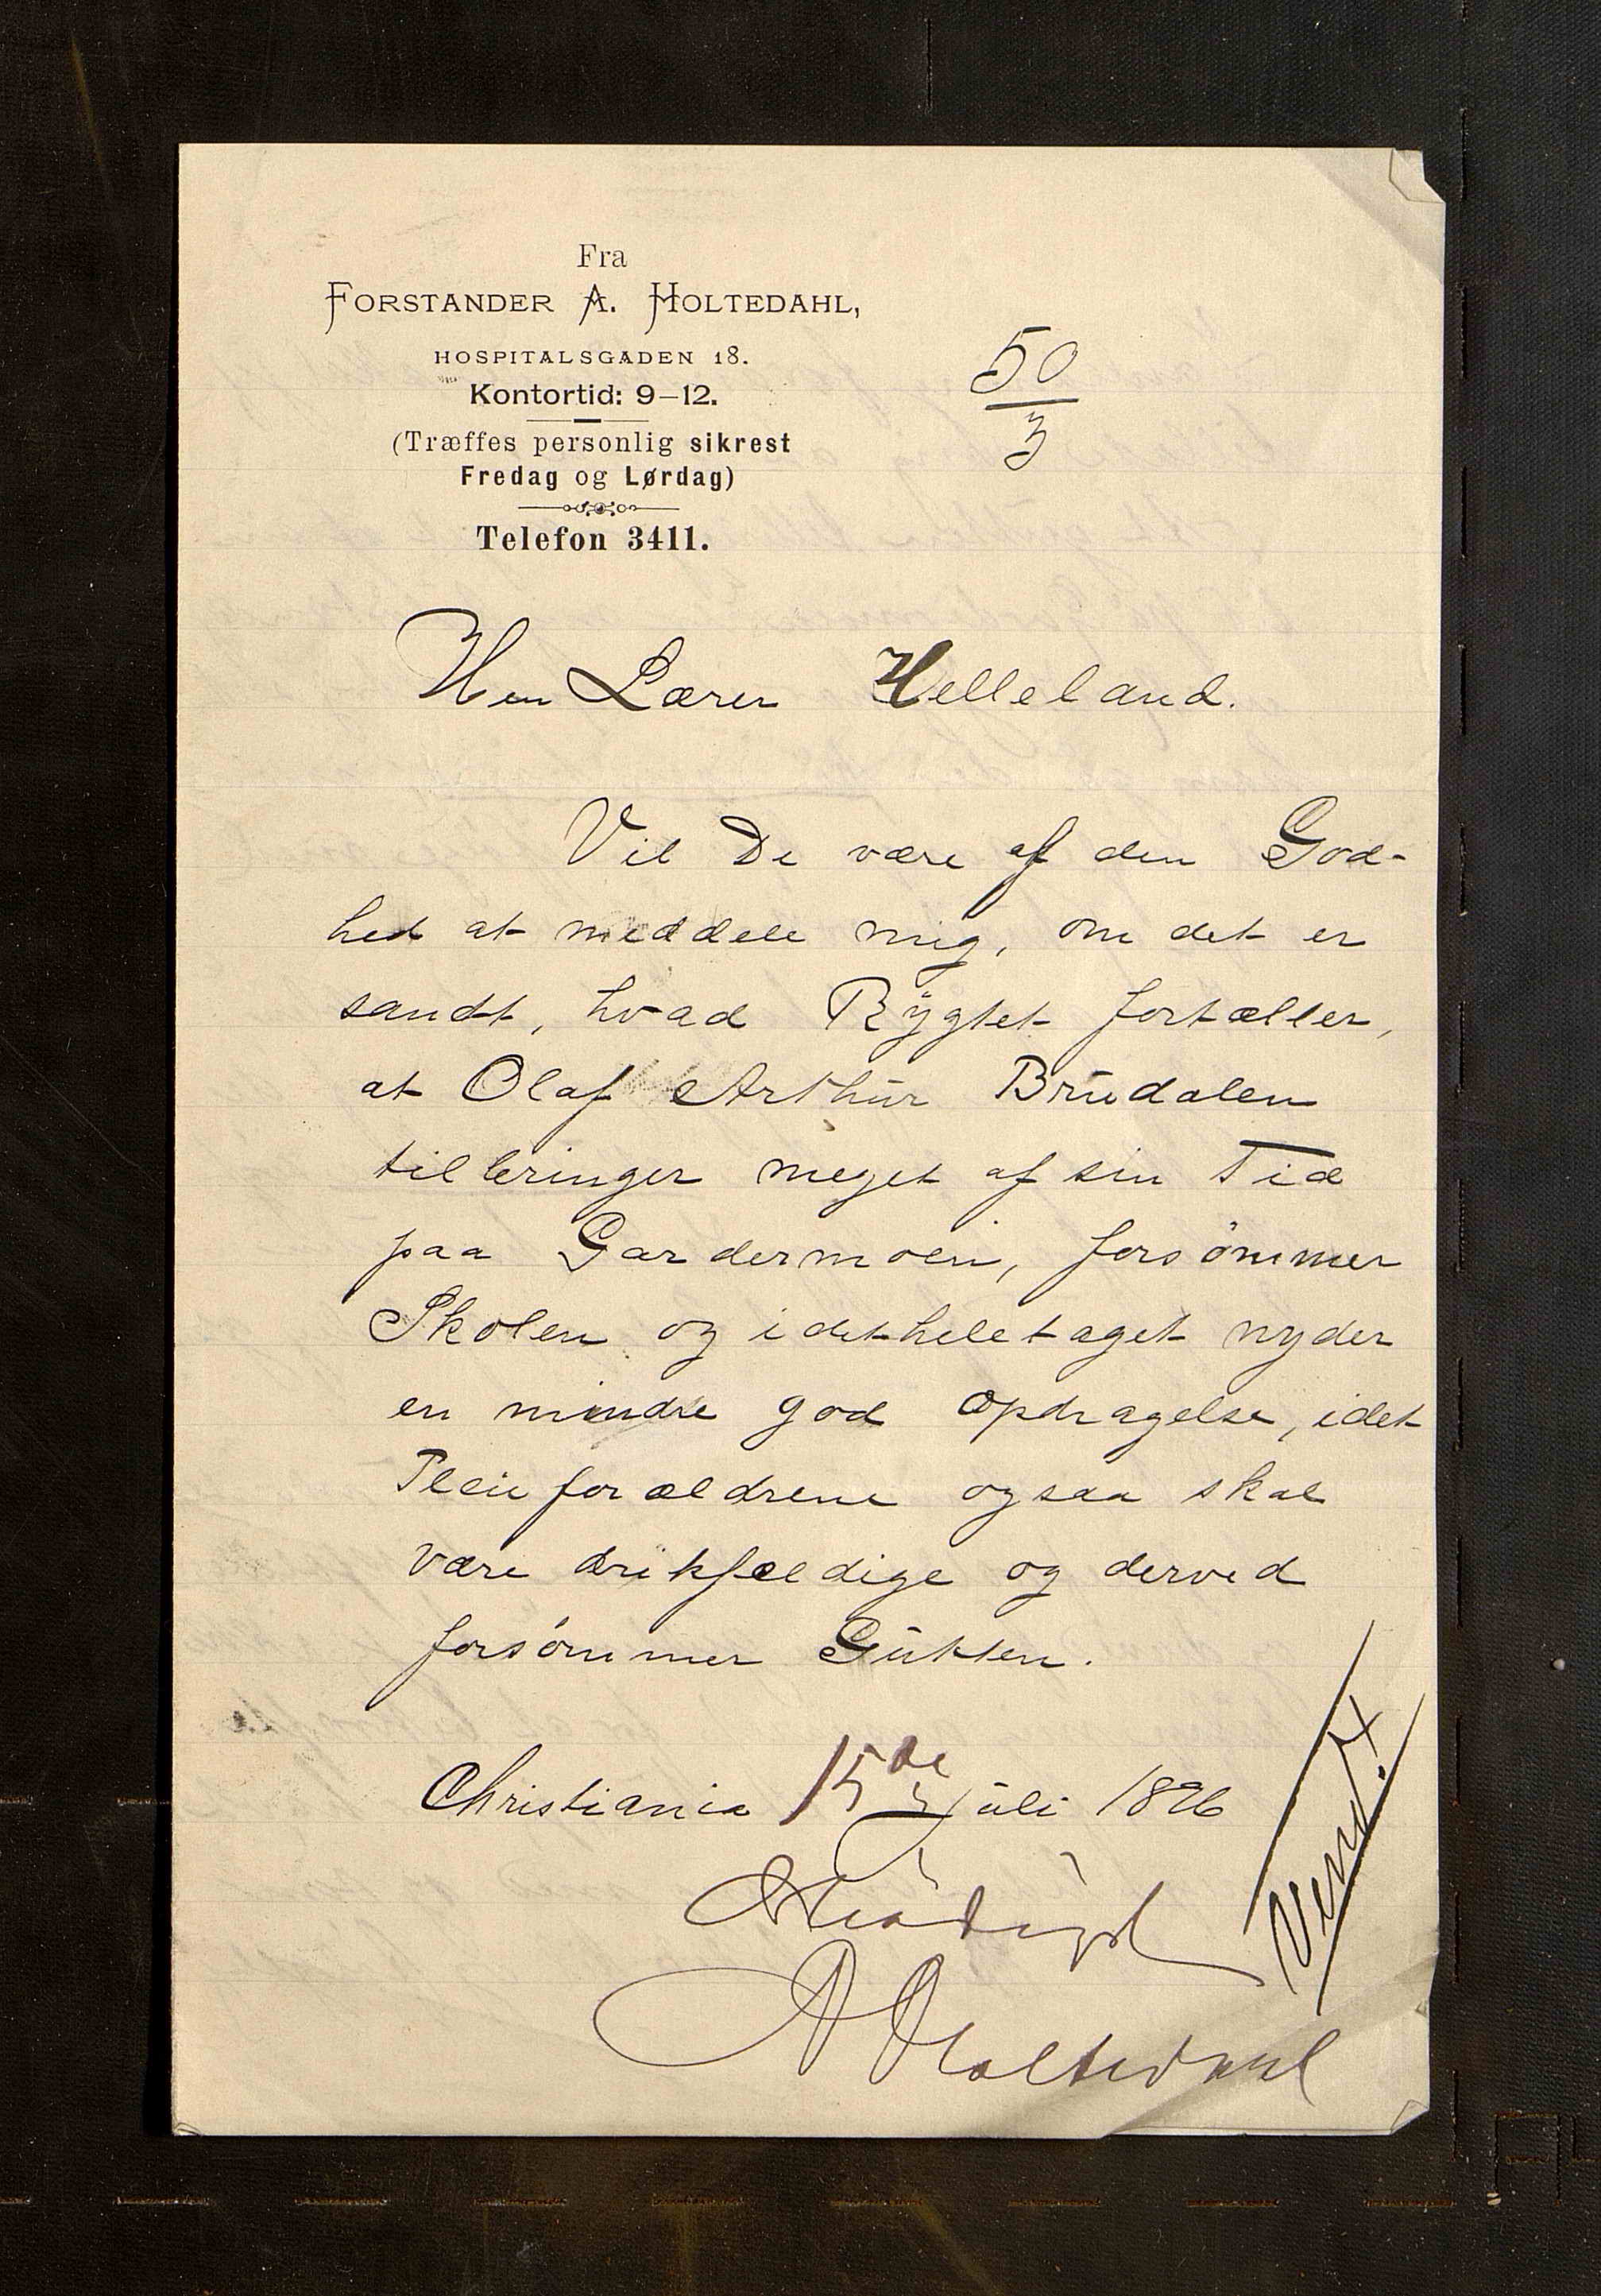 Fra
FORSTANDER A. HOLTEDAHL,
HOSPITALSGADEN 18.
Kontortid: 9–12.
(Træffes personlig sikrest
Fredag og Lørdag)
Telefon 3411.
50
3
Herr Lærer Helleland.
Vil De være af den God-
hed at meddele mig, om det er
sandt, hvad Rygtet fortæller,
at Olaf Arthur Brudalen
tilbringer meget af sin Tid
paa Gardermoen, forsömmer
Skolen og idetheletaget nyder
en mindre god Opdragelse, idet
Pleieforældrene ogsaa skal
være drikfældige og derved
forsømmer Gutten.
Christiania 15de Juli 1896
Ærbødigst
A Holtedahl
Vend!